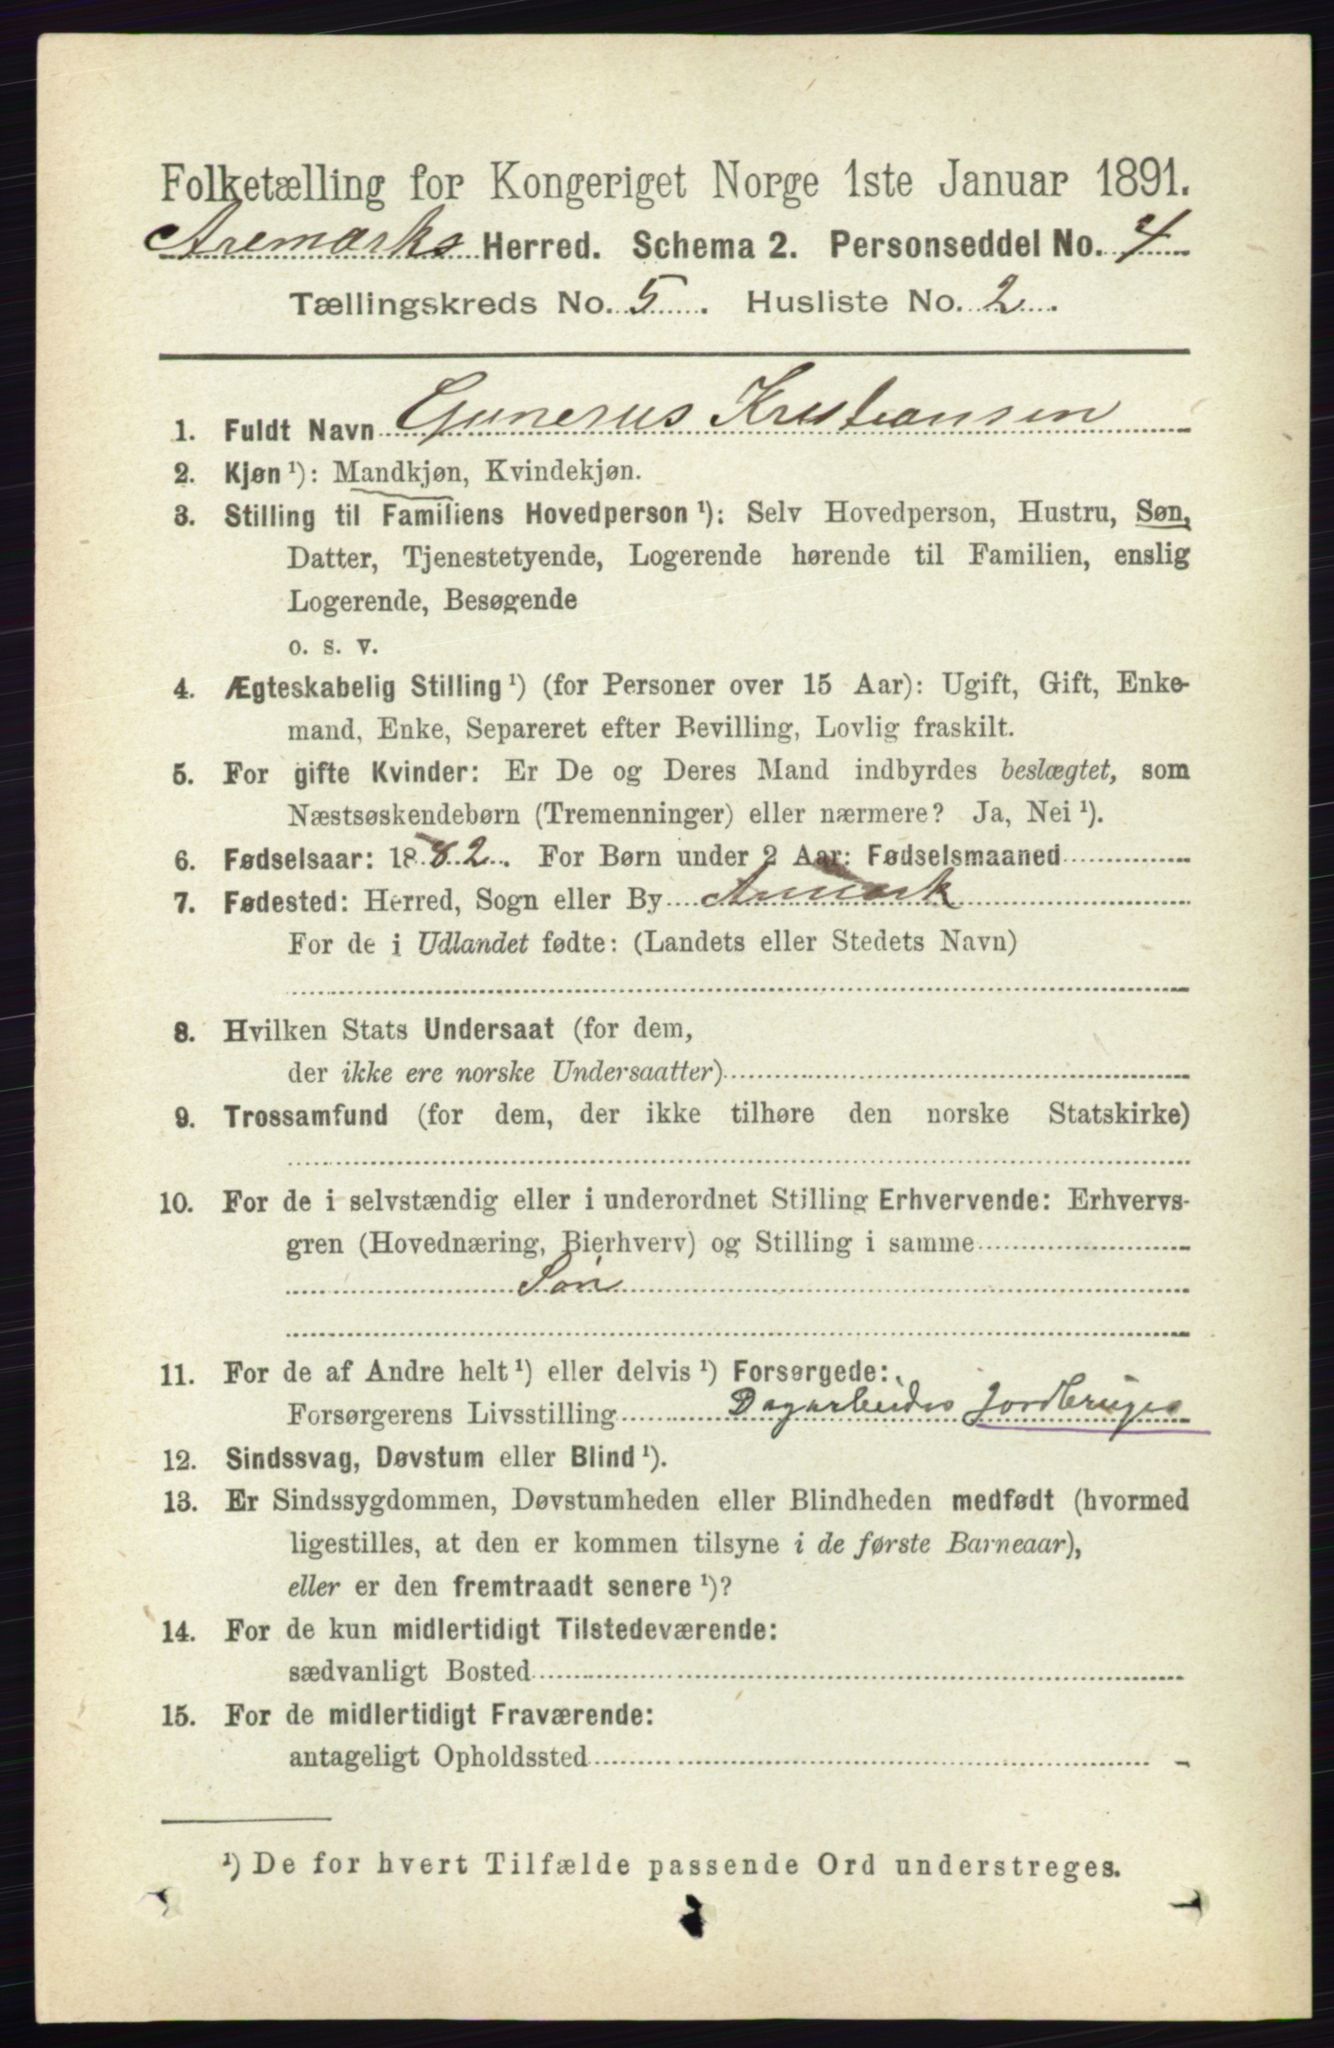 Folketælling for Kongeriget Norge 1ste Januar 1891.
Aremarks Herred. Schema 2. Personseddel No. 4
Tællingskreds No. 5. Husliste No. 2.
1. Fuldt Navn Gunerus Kristiansen
2. Kjøn ¹): Mandkjøn, Kvindekjøn.
3. Stilling til Familiens Hovedperson ¹): Selv Hovedperson, Hustru, Søn,
Datter, Tjenestetyende, Logerende hørende til Familien, enslig
Logerende, Besøgende
o. s. v.
4. Ægteskabelig Stilling ¹) (for Personer over 15 Aar): Ugift, Gift, Enke-
mand, Enke, Separeret efter Bevilling, Lovlig fraskilt.
5. For gifte Kvinder: Er De og Deres Mand indbyrdes beslægtet, som
Næstsøskendebørn (Tremenninger) eller nærmere? Ja, Nei ¹).
6. Fødselsaar: 1882. For Børn under 2 Aar: Fødselsmaaned
7. Fødested: Herred, Sogn eller By Aremark
For de i Udlandet fødte: (Landets eller Stedets Navn)
8. Hvilken Stats Undersaat (for dem,
der ikke ere norske Undersaatter)
9. Trossamfund (for dem, der ikke tilhøre den norske Statskirke)
10. For de i selvstændig eller i underordnet Stilling Erhvervende: Erhvervs-
gren (Hovednæring, Bierhverv) og Stilling i samme
Søn
11. For de af Andre helt ¹) eller delvis ¹) Forsørgede:
Forsørgerens Livsstilling Dagarbeider Jordbruger
12. Sindssvag, Døvstum eller Blind ¹).
13. Er Sindssygdommen, Døvstumheden eller Blindheden medfødt (hvormed
ligestilles, at den er kommen tilsyne i de første Barneaar),
eller er den fremtraadt senere ¹)?
14. For de kun midlertidigt Tilstedeværende:
sædvanligt Bosted
15. For de midlertidigt Fraværende:
antageligt Opholdssted
¹) De for hvert Tilfælde passende Ord understreges.